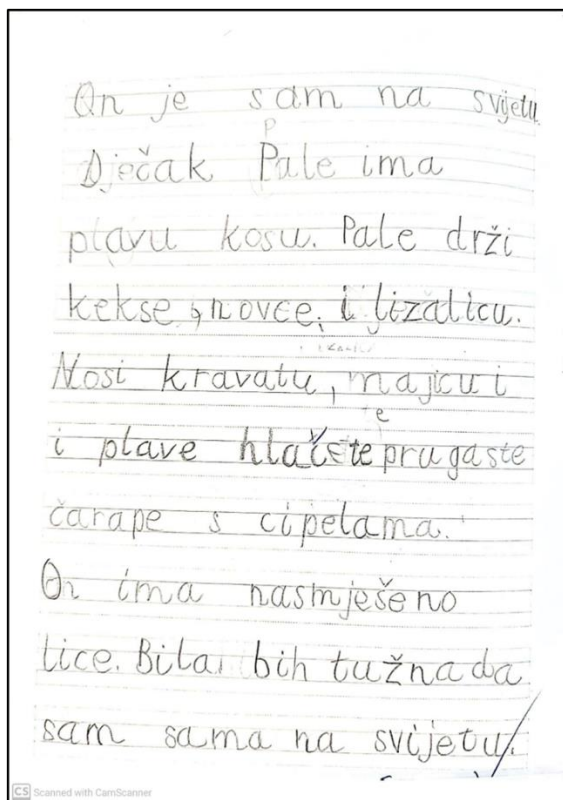 On je sam na svijetu.
Dječak Pale ima
plavu kosu. Pale drži
kekse, novce, i lizalicu.
Nosi kravatu, majicu i
i plave hlače te prugaste
čarape s cipelama.
On ima nasmješeno
lice. Bila bih tužna da
sam sama na svijetu.
CS Scanned with CamScanner